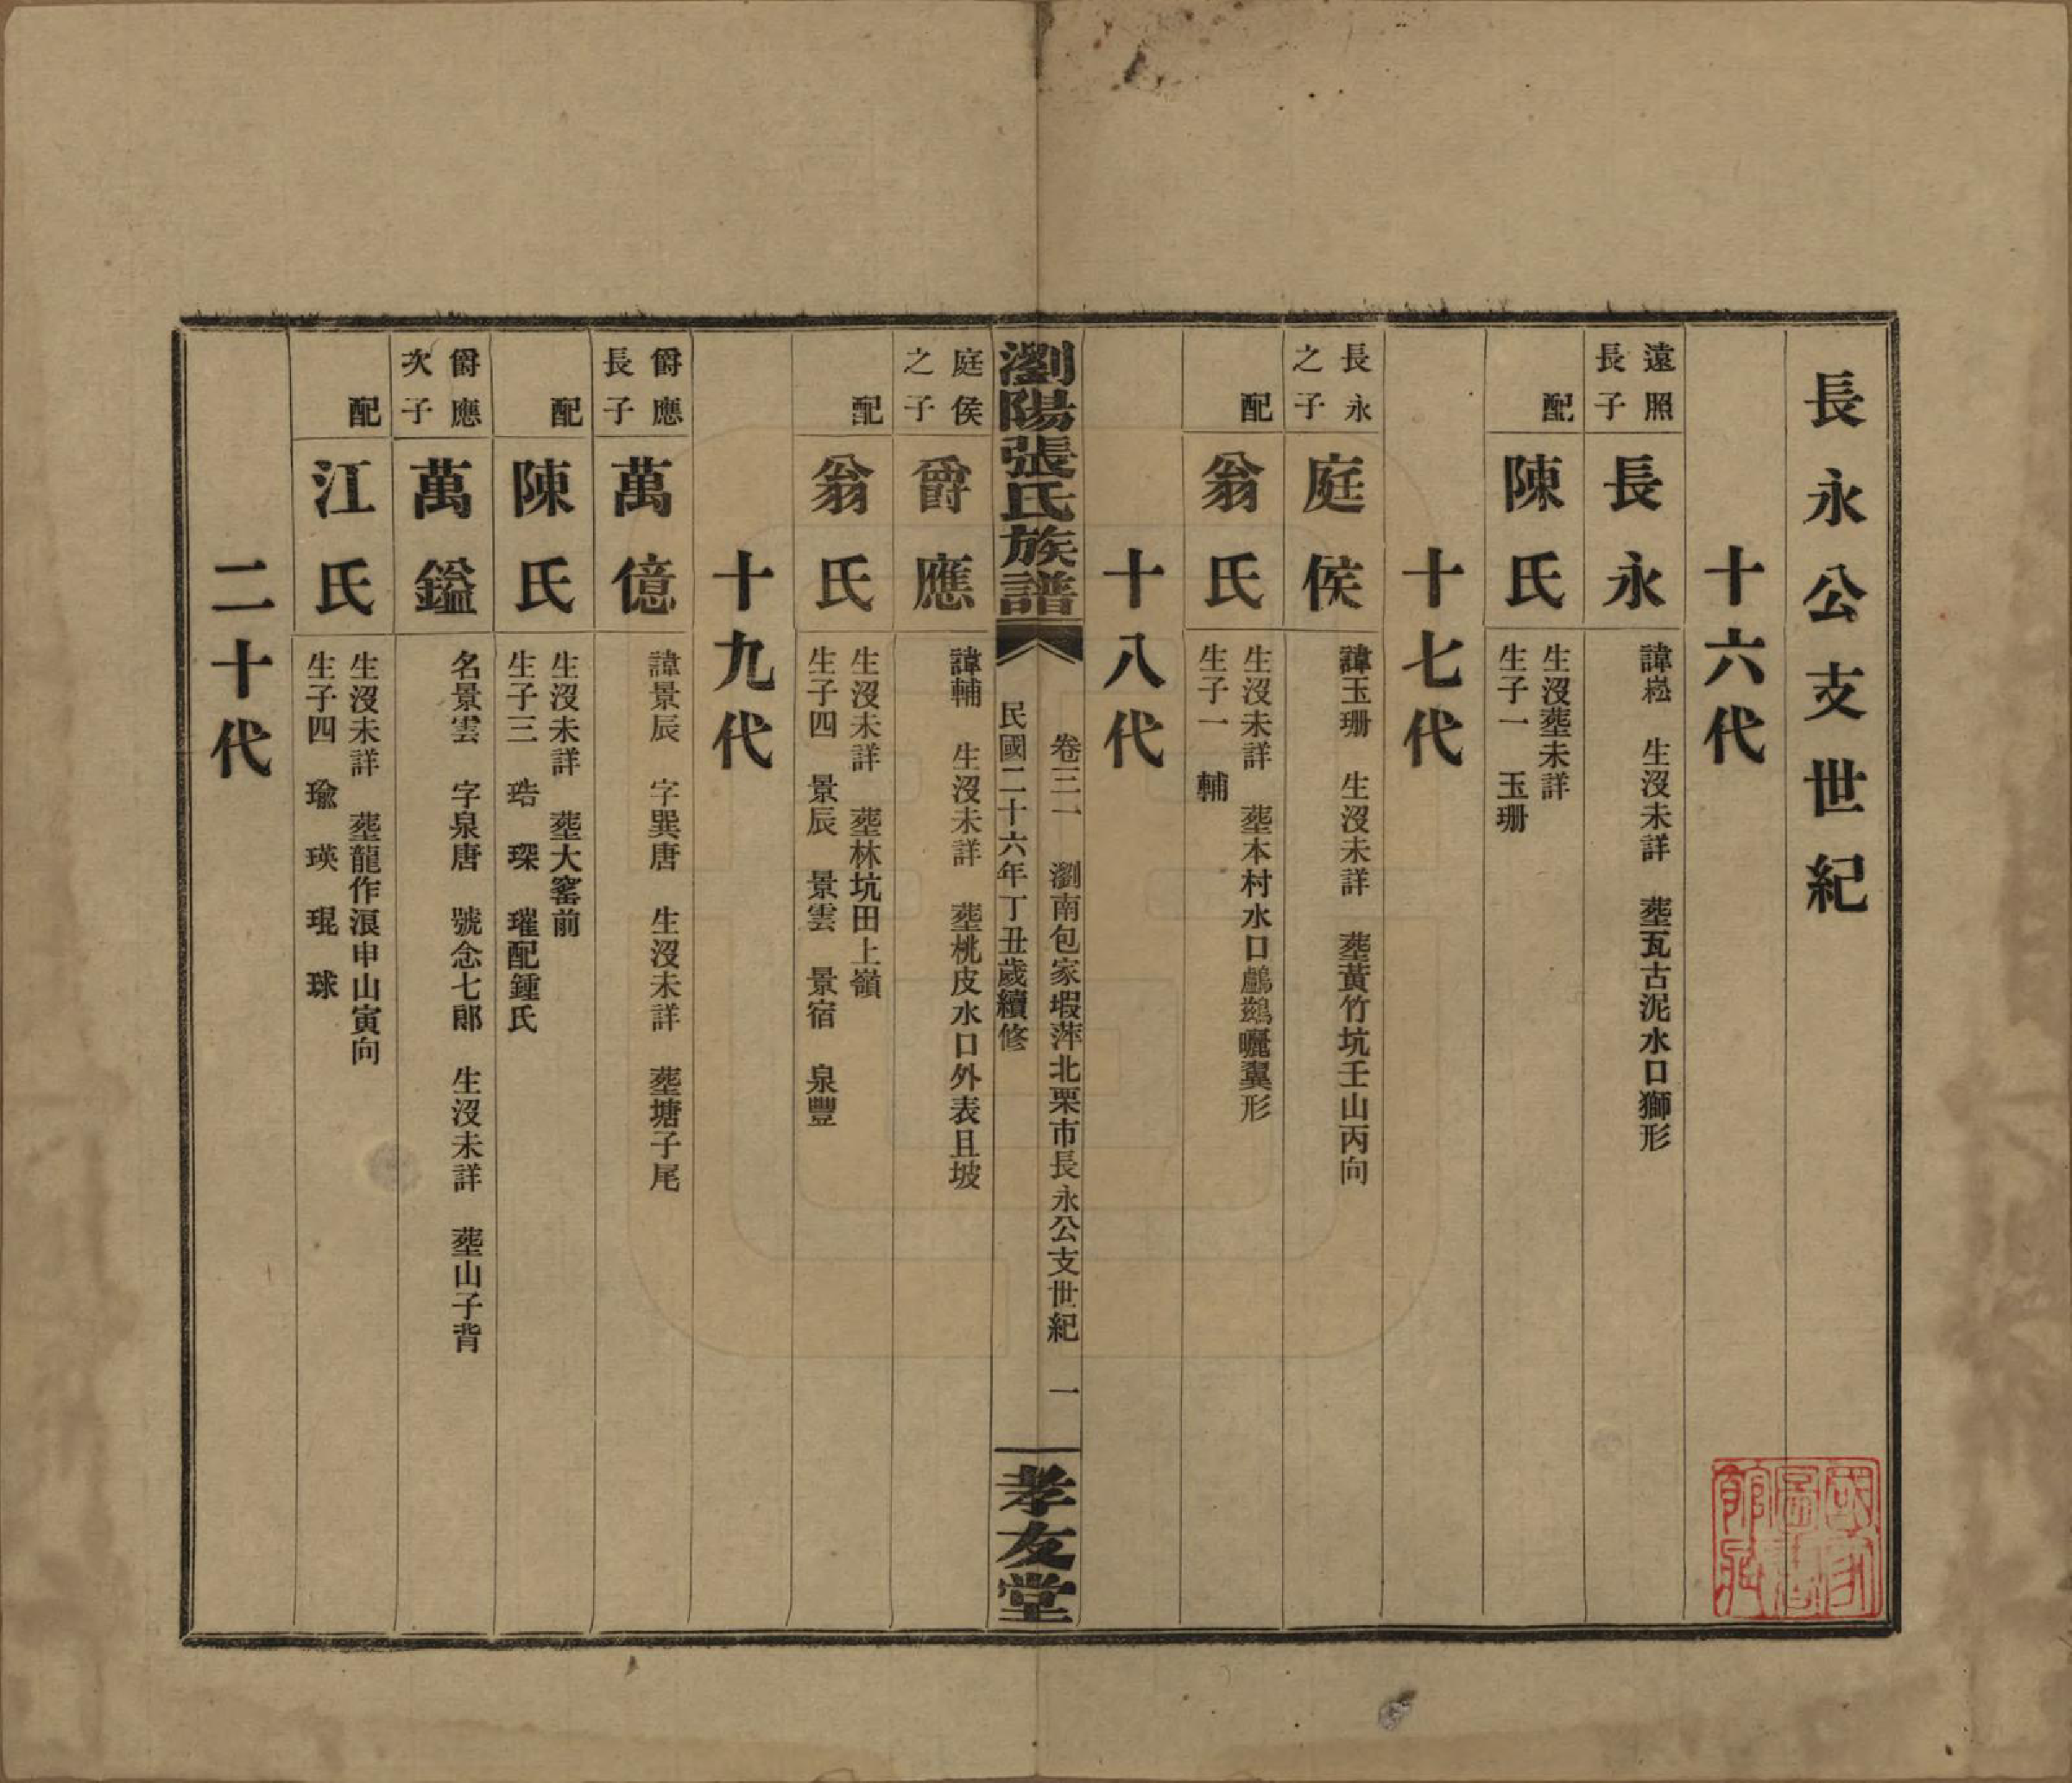 長永公支世紀
十六代
遠照
長子
長永
諱崧　生沒未詳　塟瓦古泥水口獅形
配
陳氏
生沒塟未詳
生子一　玉珊
十七代
長永
之子
庭侯
諱玉珊　生沒未詳　塟黃竹坑壬山丙向
配
翁氏
生沒未詳　塟本村水口鸕鷀曬翼形
生子一　輔
十八代
瀏陽張氏族譜
卷三一　瀏南包家塅萍北栗市長永公支世紀　一
民國二十六年丁丑歲續修
孝友堂
庭侯
之子
爵應
諱輔　生沒未詳　塟桃皮水口外表且坡
配
翁氏
生沒未詳　塟林坑田上嶺
生子四　景辰　景雲　景宿　泉豐
十九代
爵應
長子
萬億
諱景辰　字巽唐　生沒未詳　塟塘子尾
配
陳氏
生沒未詳　塟大窰前
生子三　琣　琛　璀配鍾氏
爵應
次子
萬鎰
名景雲　字泉唐　號念七郎　生沒未詳　塟山子背
配
江氏
生沒未詳　塟龍作浪申山寅向
生子四　瑜　瑛　琨　球
二十代
國家圖書館藏